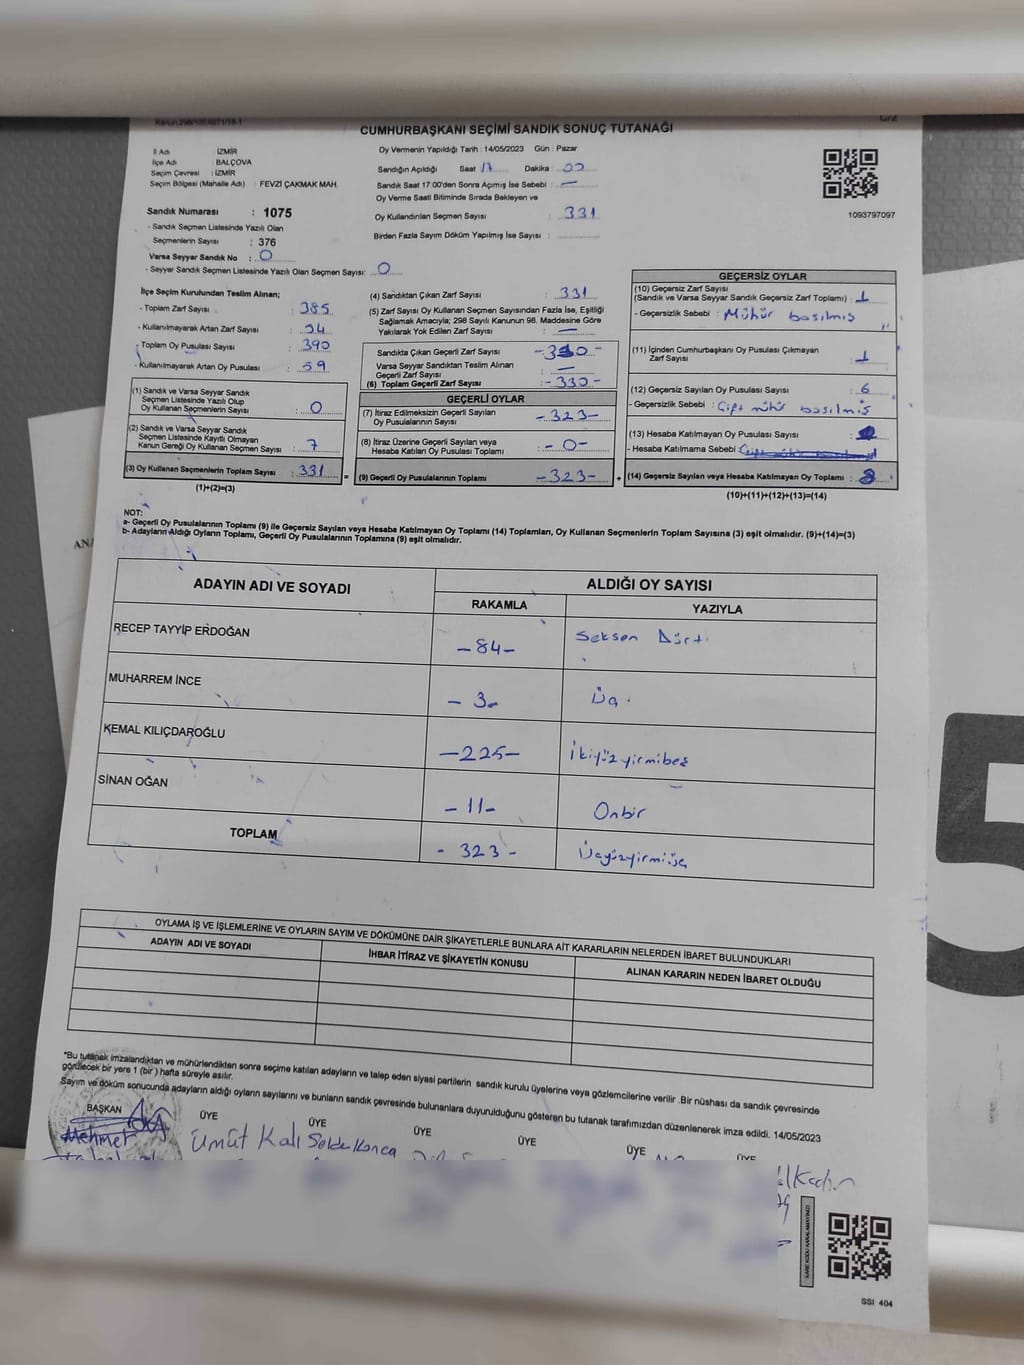 Kanun:298/105/6271/18-1
CUMHURBAŞKANI SEÇİMİ SANDIK SONUÇ TUTANAĞI
İl Adı İZMİR
İlçe Adı : BALÇOVA
Seçim Çevresi : İZMİR
Seçim Bölgesi (Mahalle Adı) : FEVZİ ÇAKMAK MAH.
Oy Vermenin Yapıldığı Tarih : 14/05/2023 Gün : Pazar
Sandığın Açıldığı Saat 17 Dakika : 00
Sandık Saat 17:00'den Sonra Açımış İse Sebebi : —
Oy Verme Saati Bitiminde Sırada Bekleyen ve
Oy Kullandırılan Seçmen Sayısı : 331
Birden Fazla Sayım Döküm Yapılmış İse Sayısı :
1093797097
Sandık Numarası : 1075
- Sandık Seçmen Listesinde Yazılı Olan
Seçmenlerin Sayısı : 376
Varsa Seyyar Sandık No : 0
- Seyyar Sandık Seçmen Listesinde Yazılı Olan Seçmen Sayısı: 0
İlçe Seçim Kurulundan Teslim Alınan;
- Toplam Zarf Sayısı : 385
- Kullanılmayarak Artan Zarf Sayısı : 54
- Toplam Oy Pusulası Sayısı : 390
- Kullanılmayarak Artan Oy Pusulası : 59
(1) Sandık ve Varsa Seyyar Sandık
Seçmen Listesinde Yazılı Olup
Oy Kullanan Seçmenlerin Sayısı : 0
(2) Sandık ve Varsa Seyyar Sandık
Seçmen Listesinde Kayıtlı Olmayan
Kanun Gereği Oy Kullanan Seçmen Sayısı : 7
(3) Oy Kullanan Seçmenlerin Toplam Sayısı : 331 =
(1)+(2)=(3)
(4) Sandıktan Çıkan Zarf Sayısı : 331
(5) Zarf Sayısı Oy Kullanan Seçmen Sayısından Fazla İse, Eşitliği
Sağlamak Amacıyla; 298 Sayılı Kanunun 98. Maddesine Göre
Yakılarak Yok Edilen Zarf Sayısı : —
Sandıkta Çıkan Geçerli Zarf Sayısı -330-
Varsa Seyyar Sandıktan Teslim Alınan
Geçerli Zarf Sayısı : —
(6) Toplam Geçerli Zarf Sayısı : -330-
GEÇERLİ OYLAR
(7) İtiraz Edilmeksizin Geçerli Sayılan
Oy Pusulalarının Sayısı : -323-
(8) İtiraz Üzerine Geçerli Sayılan veya
Hesaba Katılan Oy Pusulası Toplamı : -0-
(9) Geçerli Oy Pusulalarının Toplamı -323- +
GEÇERSİZ OYLAR
(10) Geçersiz Zarf Sayısı
(Sandık ve Varsa Seyyar Sandık Geçersiz Zarf Toplamı) : 1
- Geçersizlik Sebebi : Mühür basılmış
(11) İçinden Cumhurbaşkanı Oy Pusulası Çıkmayan
Zarf Sayısı : 1
(12) Geçersiz Sayılan Oy Pusulası Sayısı : 6
- Geçersizlik Sebebi : Çift mühür basılmış
(13) Hesaba Katılmayan Oy Pusulası Sayısı :
- Hesaba Katılmama Sebebi :
(14) Geçersiz Sayılan veya Hesaba Katılmayan Oy Toplamı : 8
(10)+(11)+(12)+(13)=(14)
NOT:
a- Geçerli Oy Pusulalarının Toplamı (9) ile Geçersiz Sayılan veya Hesaba Katılmayan Oy Toplamı (14) Toplamları, Oy Kullanan Seçmenlerin Toplam Sayısına (3) eşit olmalıdır. (9)+(14)=(3)
b- Adayların Aldığı Oyların Toplamı, Geçerli Oy Pusulalarının Toplamına (9) eşit olmalıdır.
ADAYIN ADI VE SOYADI ALDIĞI OY SAYISI
RAKAMLA YAZIYLA
RECEP TAYYİP ERDOĞAN -84- Seksen Dört
MUHARREM İNCE - 3- Üç
KEMAL KILIÇDAROĞLU -225- İkiyüzyirmibeş
SİNAN OĞAN -11- Onbir
TOPLAM - 323 - Üçyüzyirmiüç
OYLAMA İŞ VE İŞLEMLERİNE VE OYLARIN SAYIM VE DÖKÜMÜNE DAİR ŞİKAYETLERLE BUNLARA AİT KARARLARIN NELERDEN İBARET BULUNDUKLARI
ADAYIN ADI VE SOYADI İHBAR İTİRAZ VE ŞİKAYETİN KONUSU ALINAN KARARIN NEDEN İBARET OLDUĞU
*Bu tutanak imzalandıktan ve mühürlendikten sonra seçime katılan adayların ve talep eden siyasi partilerin sandık kurulu üyelerine veya gözlemcilerine verilir .Bir nüshası da sandık çevresinde
görülecek bir yere 1 (bir ) hafta süreyle asılır.
Sayım ve döküm sonucunda adayların aldığı oyların sayılarını ve bunların sandık çevresinde bulunanlara duyurulduğunu gösteren bu tutanak tarafımızdan düzenlenerek imza edildi. 14/05/2023
BAŞKAN ÜYE ÜYE ÜYE ÜYE ÜYE ÜYE
Mehmet Ümüt Kalı
KARE KODU KARALAMAYINIZ!
SSI 404
5